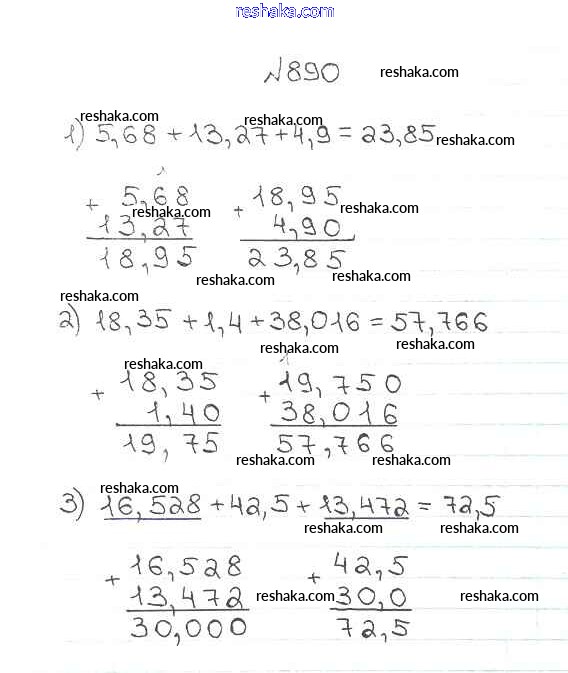 reshaka.com
№890 reshaka.com
reshaka.com reshaka.com
1) 5,68 + 13,27 + 4,9 = 23,85 reshaka.com
1
+ 5,68 + 18,95
13,27 4,90
reshaka.com reshaka.com
18,95 23,85
reshaka.com reshaka.com
reshaka.com
2) 18,35 + 1,4 + 38,016 = 57,766
reshaka.com reshaka.com
reshaka.com 1
+ 18,35 + 19,750
1,40 38,016
19,75 57,766
reshaka.com reshaka.com
reshaka.com
3) 16,528 + 42,5 + 13,472 = 72,5
reshaka.com reshaka.com
+ 16,528 + 42,5
13,472 reshaka.com 30,0 reshaka.com
30,000 72,5